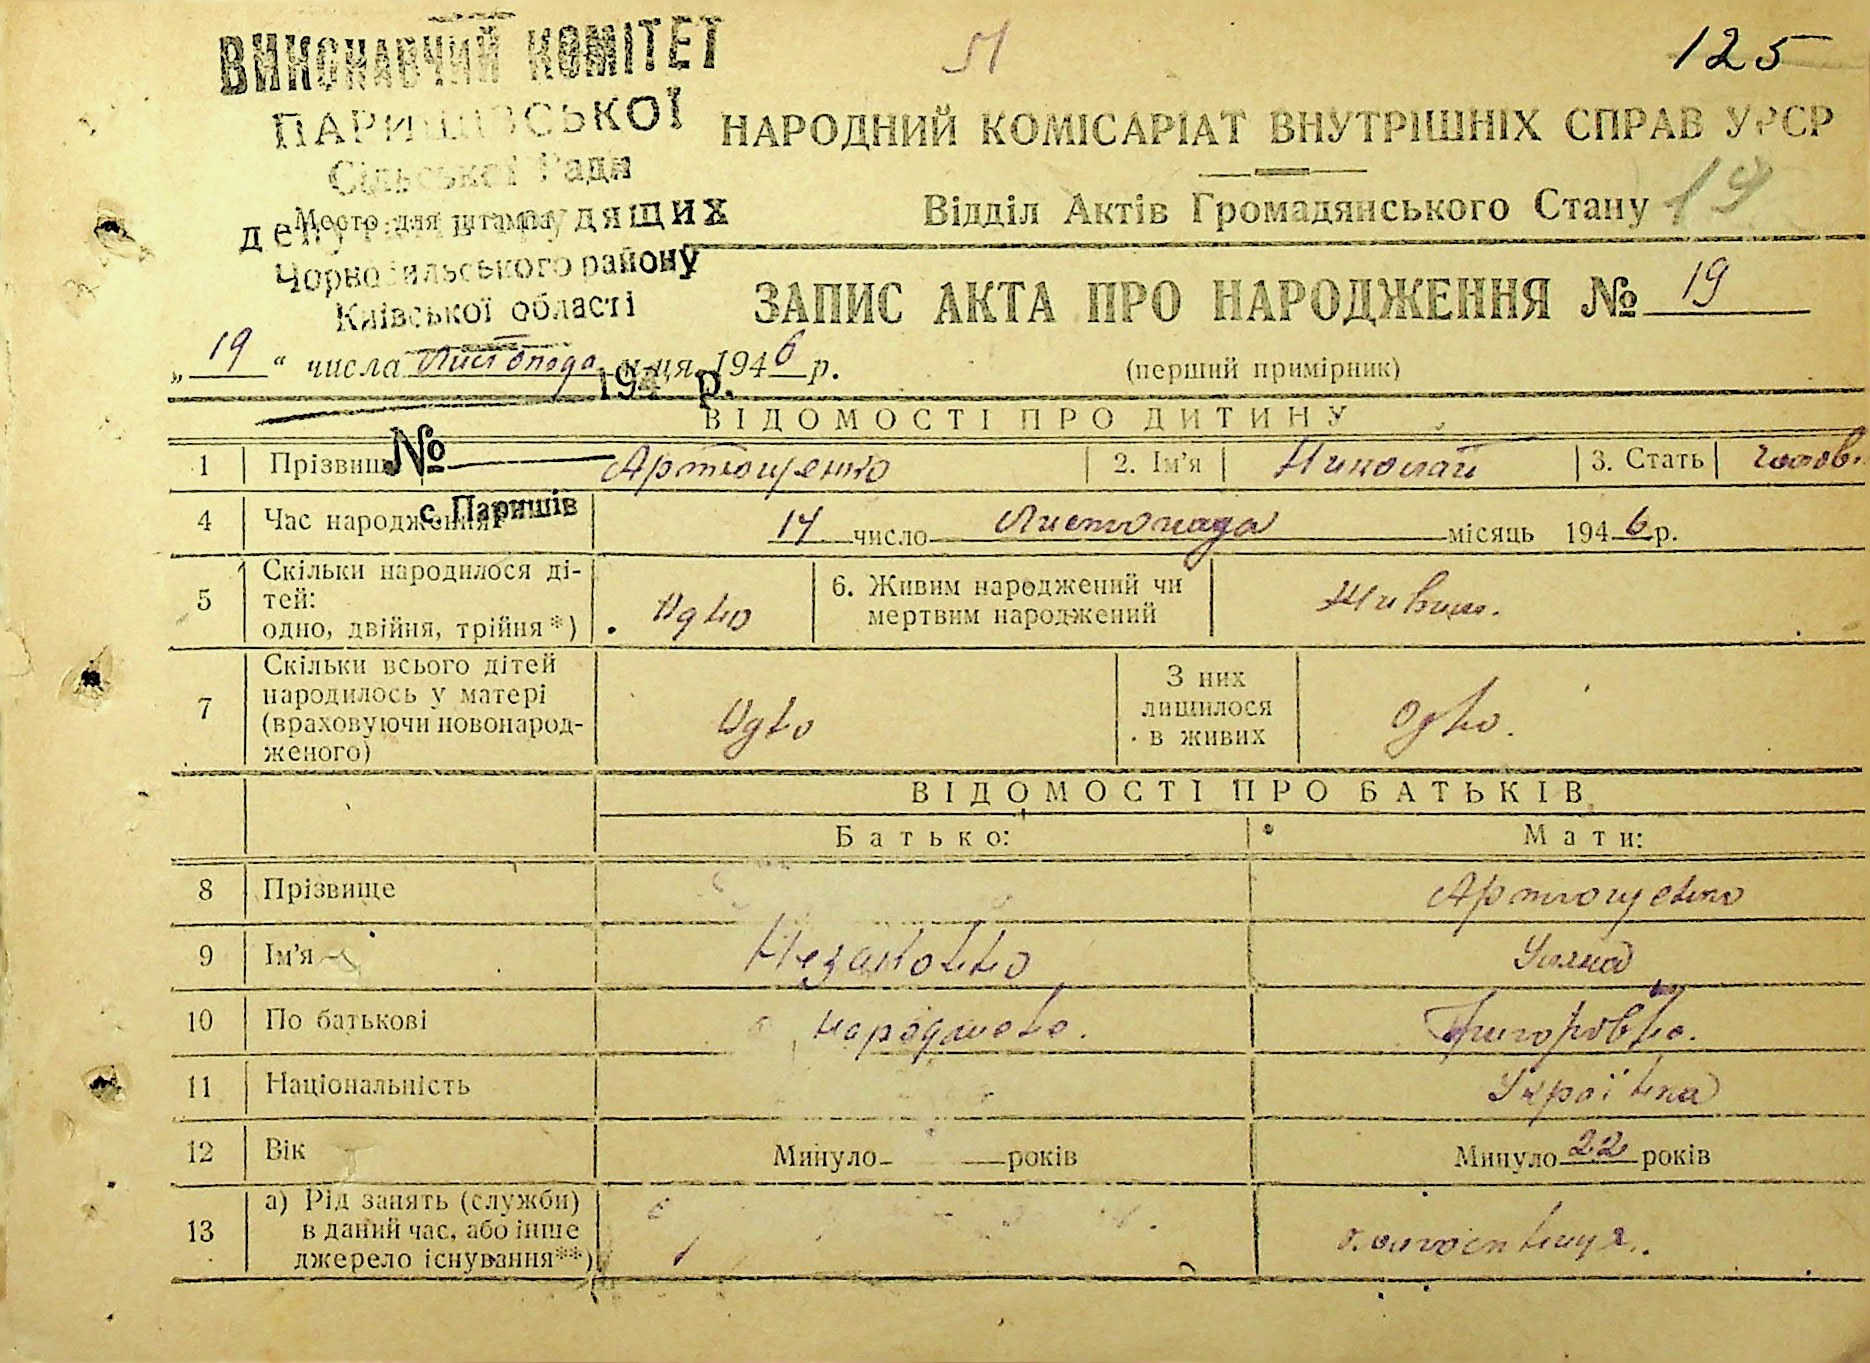 ВИКОНАВЧИЙ КОМІТЕТ
ПАРИШІВСЬКОЇ
Сільської Ради
депутатів трудящих
Место для штампа
Чорнобильського району
Київської області
194 р.
№
с. Паришів
51
125
НАРОДНИЙ КОМІСАРІАТ ВНУТРІШНІХ СПРАВ УРСР
Відділ Актів Громадянського Стану 19
ЗАПИС АКТА ПРО НАРОДЖЕННЯ № 19
„19“ числа Листопада м-ця 1946 р.
(перший примірник)
ВІДОМОСТІ ПРО ДИТИНУ
1 Прізвище Артюшенко 2. Ім'я Николай 3. Стать чолов.
4 Час народження 14 число Листопада місяць 1946 р.
5 Скільки народилося ді-
тей:
одно, двійня, трійня*) Одно 6. Живим народжений чи
мертвим народжений Живим.
7 Скільки всього дітей
народилось у матері
(враховуючи новонарод-
женого) Одно З них
лишилося
в живих Одно.
ВІДОМОСТІ ПРО БАТЬКІВ
Батько: Мати:
8 Прізвище Артюшенко
9 Ім'я Незаконно Уляна
10 По батькові народжено. Григоровна.
11 Національність Українка
12 Вік Минуло років Минуло 22 років
13 а) Рід занять (служби)
в даний час, або інше
джерело існування**)